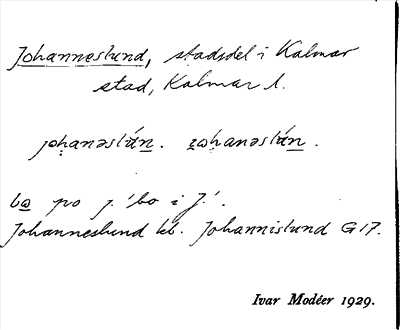 Johanneslund, stadsdel i Kalmar
stad, Kalmar l.
johanəslún. johanəslún.
bo po j. 'bo i J.'.
Johanneslund kb. Johannislund G 17.
Ivar Modéer 1929.